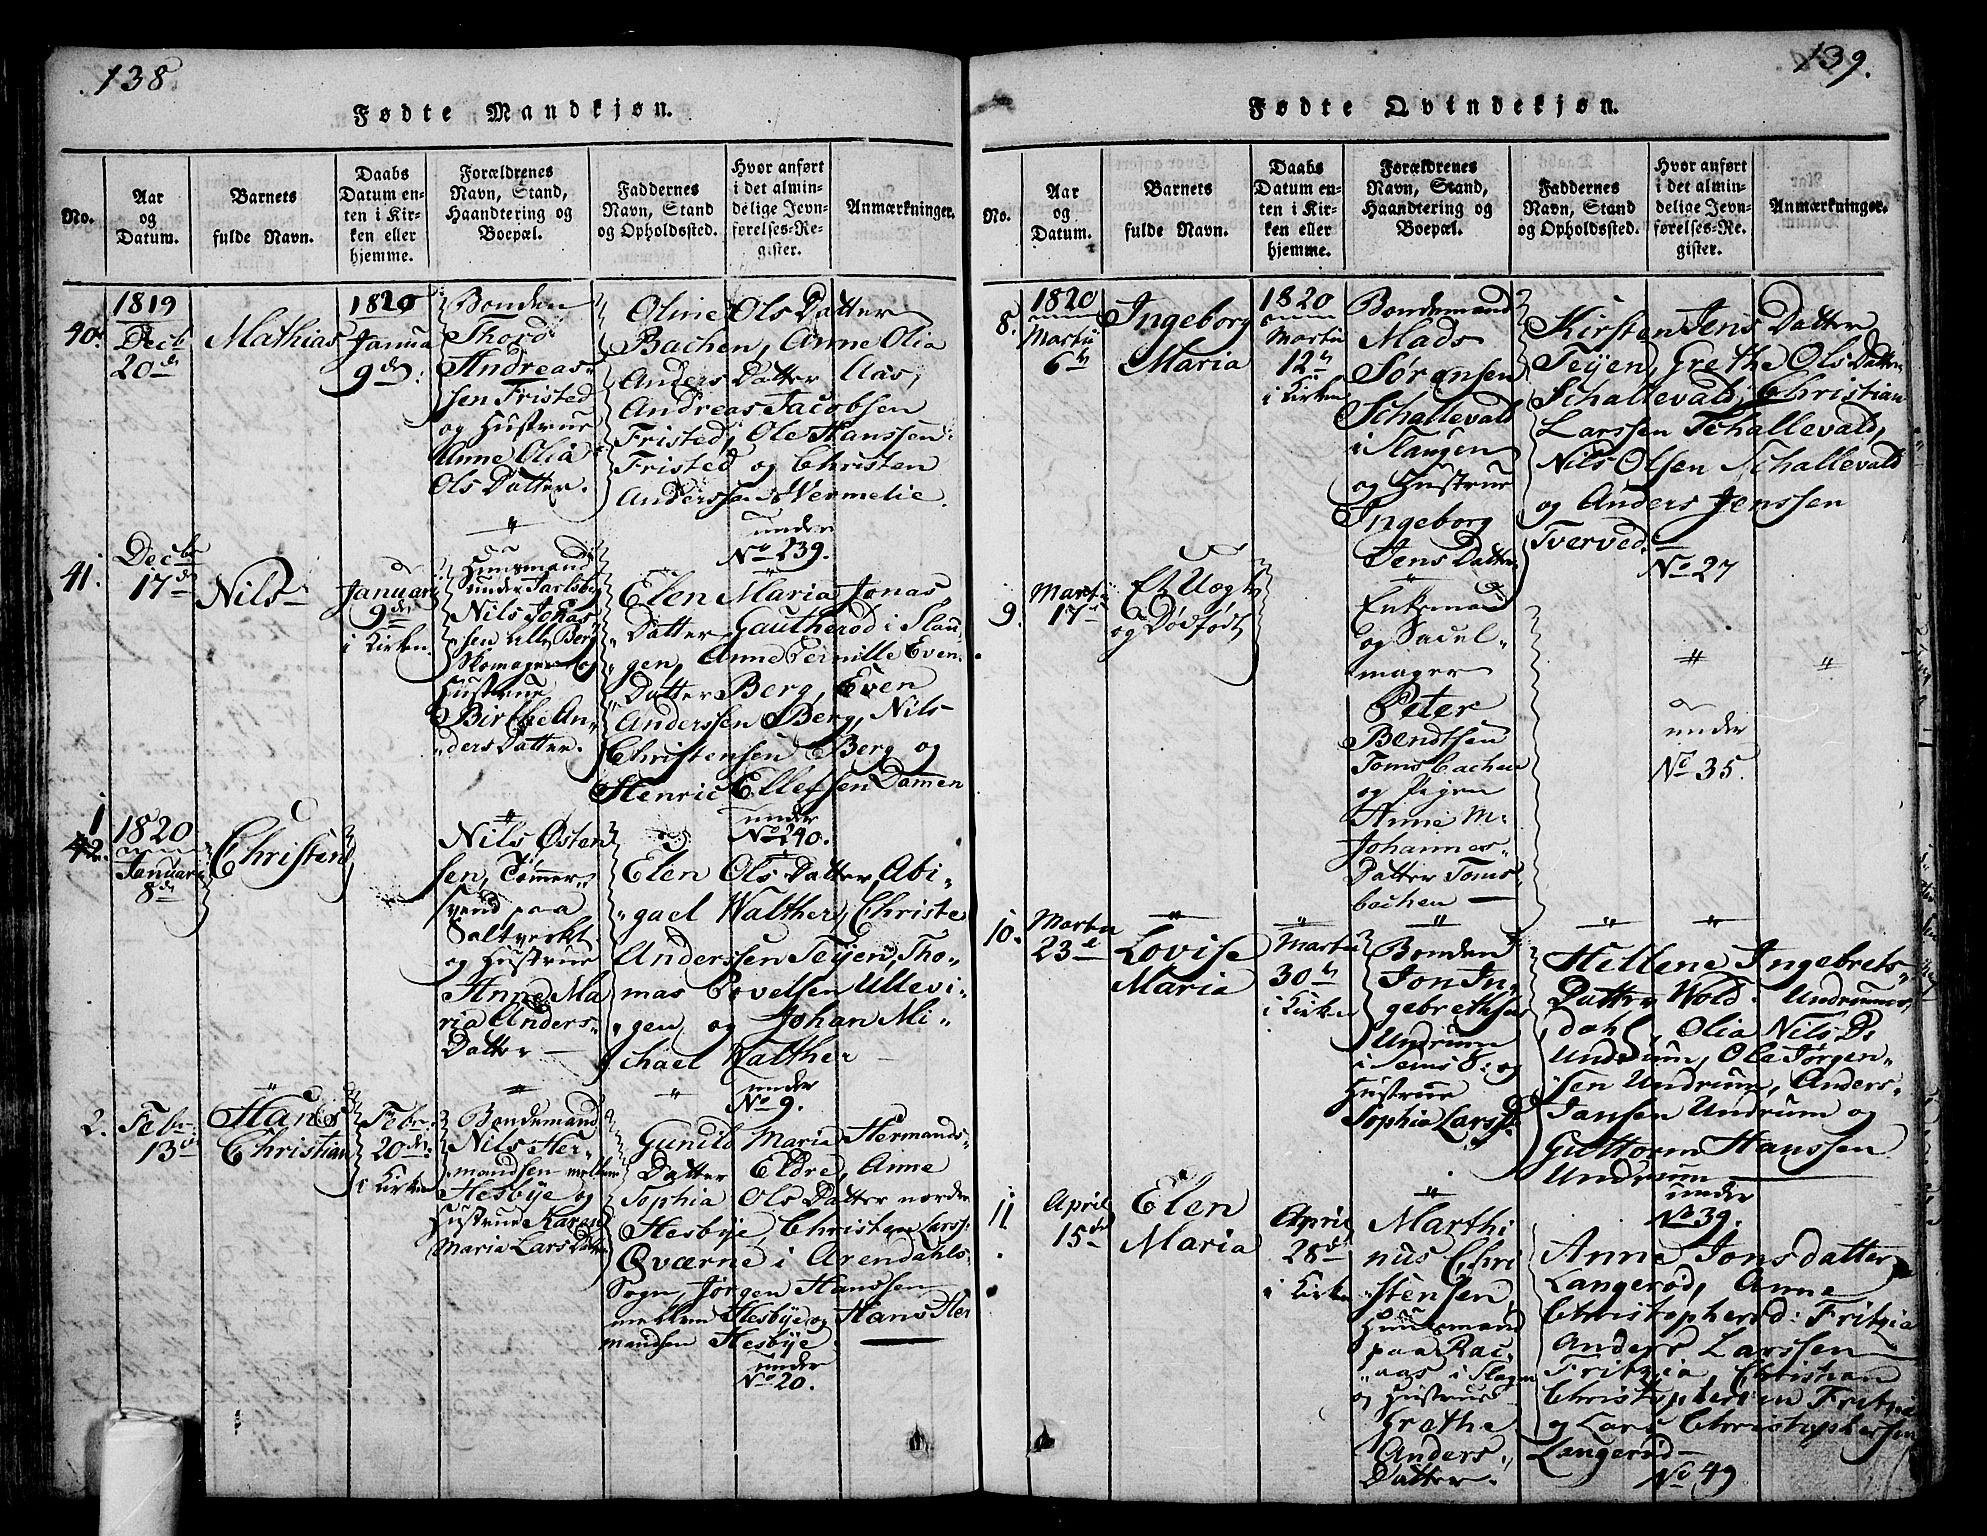 138
Fødte Mandkjøn.
No.
Aar
og
Datum.
Barnets
fulde Navn.
Daabs
Datum en-
ten i Kir-
ken eller
hjemme.
Forældrenes
Navn, Stand,
Haandtering og
Boepæl.
Faddernes
Navn, Stand
og Opholdssted.
Hvor anført
i det almin-
delige Jevn-
førelses-Re-
gister.
Anmærkninger.
40.
1819
Decb
20de
Mathias
1820
Janua
9de
Bonden
Thord
Andreas-
sen Fristed
og Hustrue
Anne Olia
Ols Datter.
Oline Ols Datter
Bachen, Anne Olia
Anders Datter Aas,
Andreas Jacobsen
Fristed, Ole Hanssen
Fristed og Christen
Anderssen Vermelie.
under
No 239.
41.
Decbr
17de
Nils
Januari
9de
i Kirken.
Huusmand
under Jarlsbg
Nils Johas-
sen Ulle Berg
Skomager og
Hustrue
Birthe An-
ders Datter.
Elen Maria Jonas
Datter Gautherød i Slau-
gen, Anne Pernille Even
Datter Berg, Even
Anderssen Berg, Nils
Christensen Berg og
Henric Ellefsen Dammen
under
No 240.
1
42.
1820
Januari
8de
Christen
Nils Østen
sen, Tømer-
svend paa
Saltverket
og Hustrue
Anne Ma
ria Anders-
Datter
Elen Ols Datter, Abi-
gael Walther, Christe
Anderssen Teyen, Tho-
mas Povelsen Ullevi-
gen og Johan Mi-
chael Walther
under
No 9.
2.
Febr
13de
Hans
Christian
Febr
20de
i Kirken
Bondemand
Nils Her-
mandsen mellem
Hesbye og
Hustrue Karen
Maria Lars Datter
Gunild Maria Hermands-
Datter Eldre, Anne
Sophia Ols Datter norden
Hesbye, Christen Larss:
Qværne i Arendahls-
Sogn, Jørgen Hanssen
mellem Hesbye og Hans Her
mandsen Hesbye.
under
No 20.
139.
Fødte Qvindekjøn.
No.
Aar
og
Datum.
Barnets
fulde Navn.
Daabs
Datum en-
ten i Kir-
ken eller
hjemme.
Forældrenes
Navn, Stand,
Haandtering og
Boepæl.
Faddernes
Navn, Stand
og Opholdssted.
Hvor anført
i det almin-
delige Jevn-
førelses-Re-
gister.
Anmærkninger.
8.
1820
Martii
6te
Ingeborg
Maria
1820
Martii
12te
i Kirken
Bondemand
Mads
Sørensen
Schallevald
i Slaugen
og Hustrue
Ingeborg
Jens Datter
Kirsten Jens Datter
Teyen, Grethe Ols Datter
Schallevald, Christian
Larssen Schallevald,
Nils Olsen Schallevald
og Anders Jenssen
Tverved.
No 27
9.
Martii
17de
Et Uægte
og Dødfødt
Enkemand
og Sadel-
mager
Peter
Bendtsen
Tomsbachen
og Pigen
Anne M.
Johannes-
Datter Toms-
bachen
under
No 35.
10.
Martii
23de
Lovise
Maria
Martii
30te
i Kirken
Bonden
Jon In-
gebrethsen
Undrum
i Sems S: og
Hustrue
Sophia Larss D.
Hellene Ingebrets-
Datter Wold. Undrums-
dahl, Olia Nils D.
Undrum, Ole Jørgen-
sen Undrum, Anders
Jansen Undrum og
Guttorm Hanssen
Undrum
under
No 39.
11
April
15de
Elen
Maria
April
28de
i Kirken
Marthi
nus Chri
stensen
Huusmand
paa Rac-
aas i Slagen
og Hustrue
Grethe
Anders
Datter.
Anne Jonsdatter
Langerød, Anne
Christopherød: Fritzia
Anders Larssen
Fritzia, Christian
Christophersen Fritzia
og Lars Christophersen
Langerød
No 49